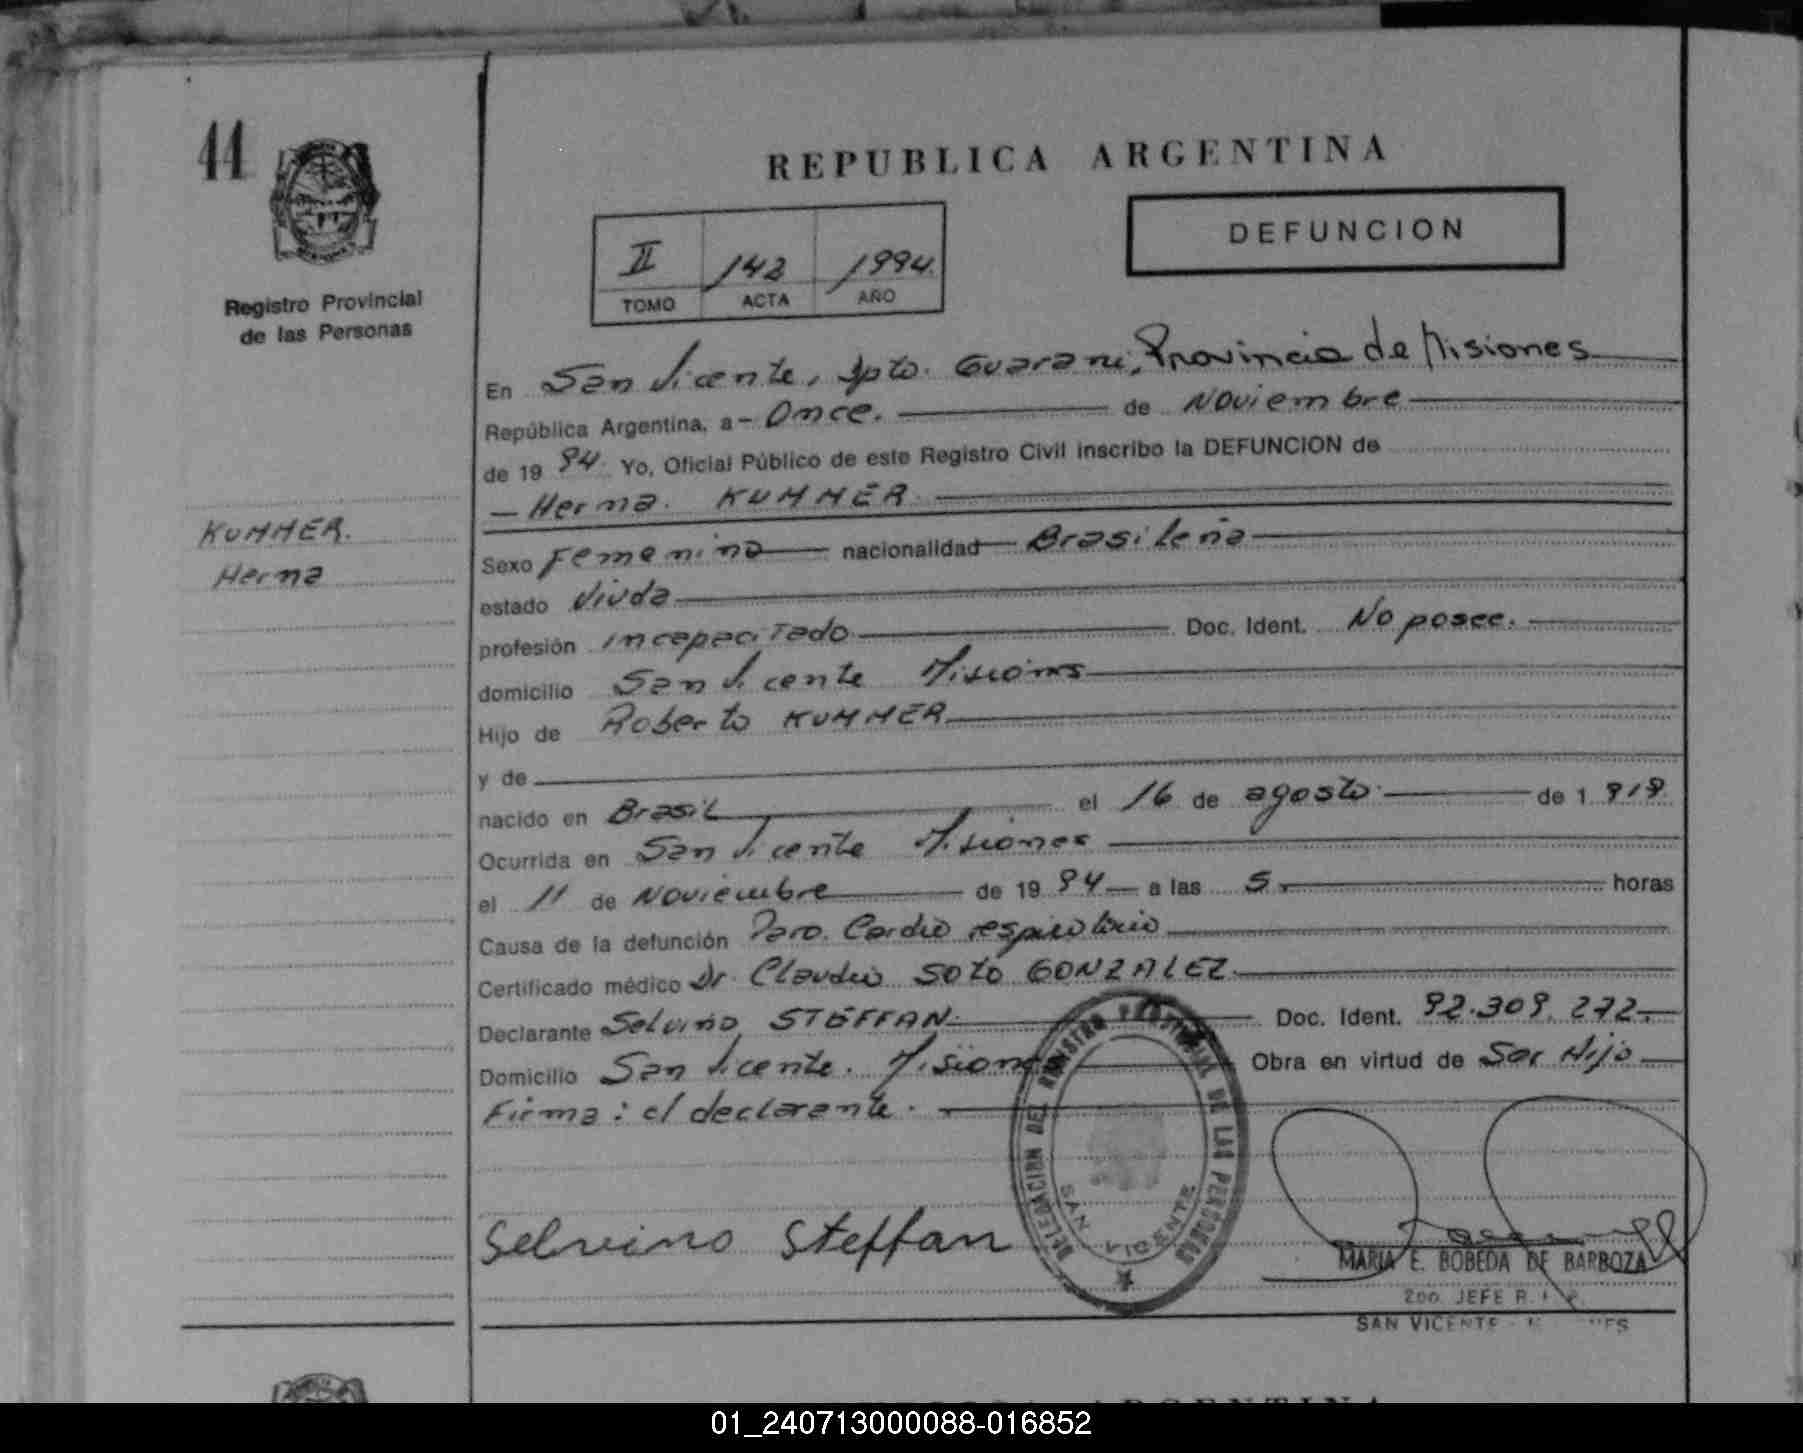 11
REPUBLICA ARGENTINA
DEFUNCION
II 142 1994.
TOMO ACTA AÑO
Registro Provincial
de las Personas
En San Vicente, dpto. Guarani, Provincia de Misiones
República Argentina, a - Once. de Noviembre
de 19 94. Yo, Oficial Público de este Registro Civil inscribo la DEFUNCION de
- Herma. KUMMER
KUMMER.
Herma
Sexo Femenina nacionalidad Brasileña
estado Viuda
profesión incapacitado Doc. Ident. No posee.
domicilio San Vicente Misiones
Hijo de Roberto KUMMER
y de
nacido en Brasil el 16 de agosto de 1 919
Ocurrida en San Vicente Misiones
el 11 de Noviembre de 19 94 a las 5. horas
Causa de la defunción Paro. Cardio respiratorio
Certificado médico Dr. Claudio SOTO GONZALEZ.
Declarante Selvino STEFFAN. Doc. Ident. 92.309.272.
Domicilio San Vicente. Misiones Obra en virtud de Ser Hijo
Firma: el declarante.
DELEGACION DEL REGISTRO PROVINCIAL DE LAS PERSONAS
SAN VICENTE
Selvino Steffan
MARIA E. BOBEDA DE BARBOZA
2do. JEFE R.
SAN VICENTE -
REPUBLICA ARGENTINA
01_240713000088-016852